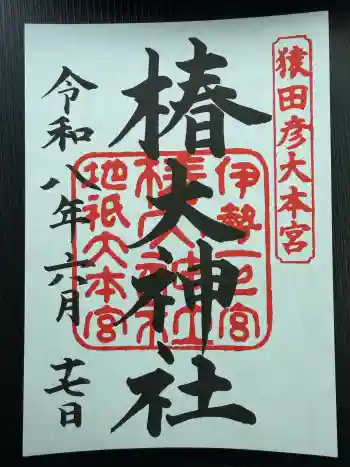 猿田彦大本宮
椿大神社
伊勢一之宮
椿大神社
地祇大本宮
令和八年六月
十七日